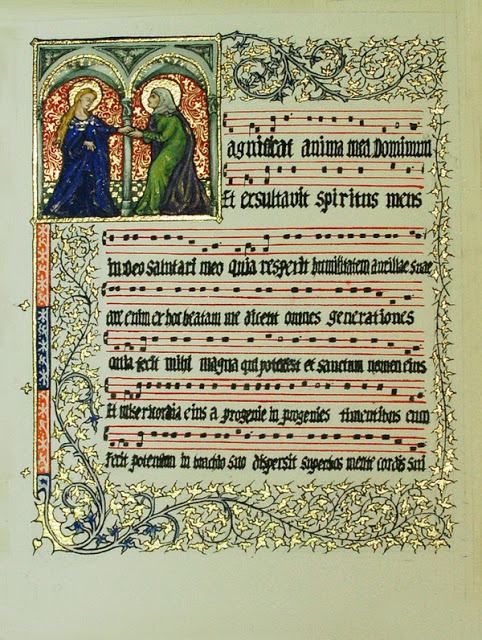 agnificat anima mea Dominum
Et exsultavit spiritus meus
in deo salutari meo quia respexit humilitatem ancillae suae
ecce enim ex hoc beatam me dicent omnes generationes
quia fecit mihi magna qui potens est et sanctum nomen eius
Et misericordia eius a progenie in progenies timentibus eum
Fecit potentiam in brachio suo dispersit superbos mente cordis sui